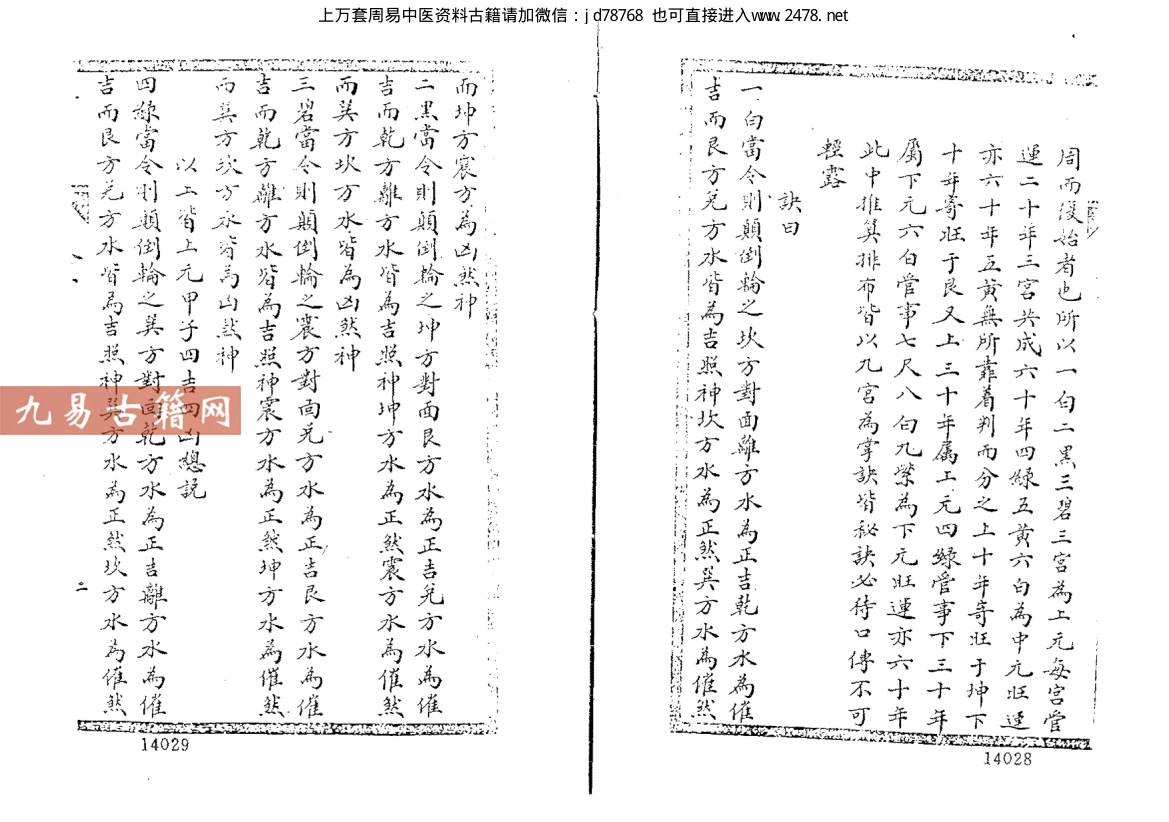 上万套周易中医资料古籍请加微信：jd78768 也可直接进入www.2478.net
周而復始者也所以一白二黑三碧三宮為上元每宮管
運二十年三宮共成六十年四緑五黄六白為中元旺運
亦六十年五黄無所靠着判而分之上十年寄旺于坤下
十年寄旺于艮又上三十年属上元四緑管事下三十年
屬下元六白管事七尺八白九紫為下元旺運亦六十年
此中推算排布皆以九宮為掌訣皆秘訣必待口傳不可
輕露
訣曰
一白當令則顛倒輪之坎方對面離方水為正吉乾方水為催
吉而艮方兌方水皆為吉照神坎方水為正煞巽方水為催煞
14028
而坤方震方為凶煞神
二黑當令則顛倒輪之坤方對面艮方水為正吉兌方水為催
吉而乾方離方水皆為吉照神坤方水為正煞震方水為催煞
而巽方坎方水皆為凶煞神
三碧當令則顛倒輪之震方對面兌方水為正吉艮方水為催
吉而乾方離方水皆為吉照神震方水為正煞坤方水為催煞
而巽方坎方水皆為凶煞神
以上皆上元甲子四吉四凶總説
四緑當令則顛倒輪之巽方對面乾方水為正吉離方水為催
吉而艮方兌方水皆為吉照神巽方水為正煞坎方水為催煞
二
14029
九易古籍网